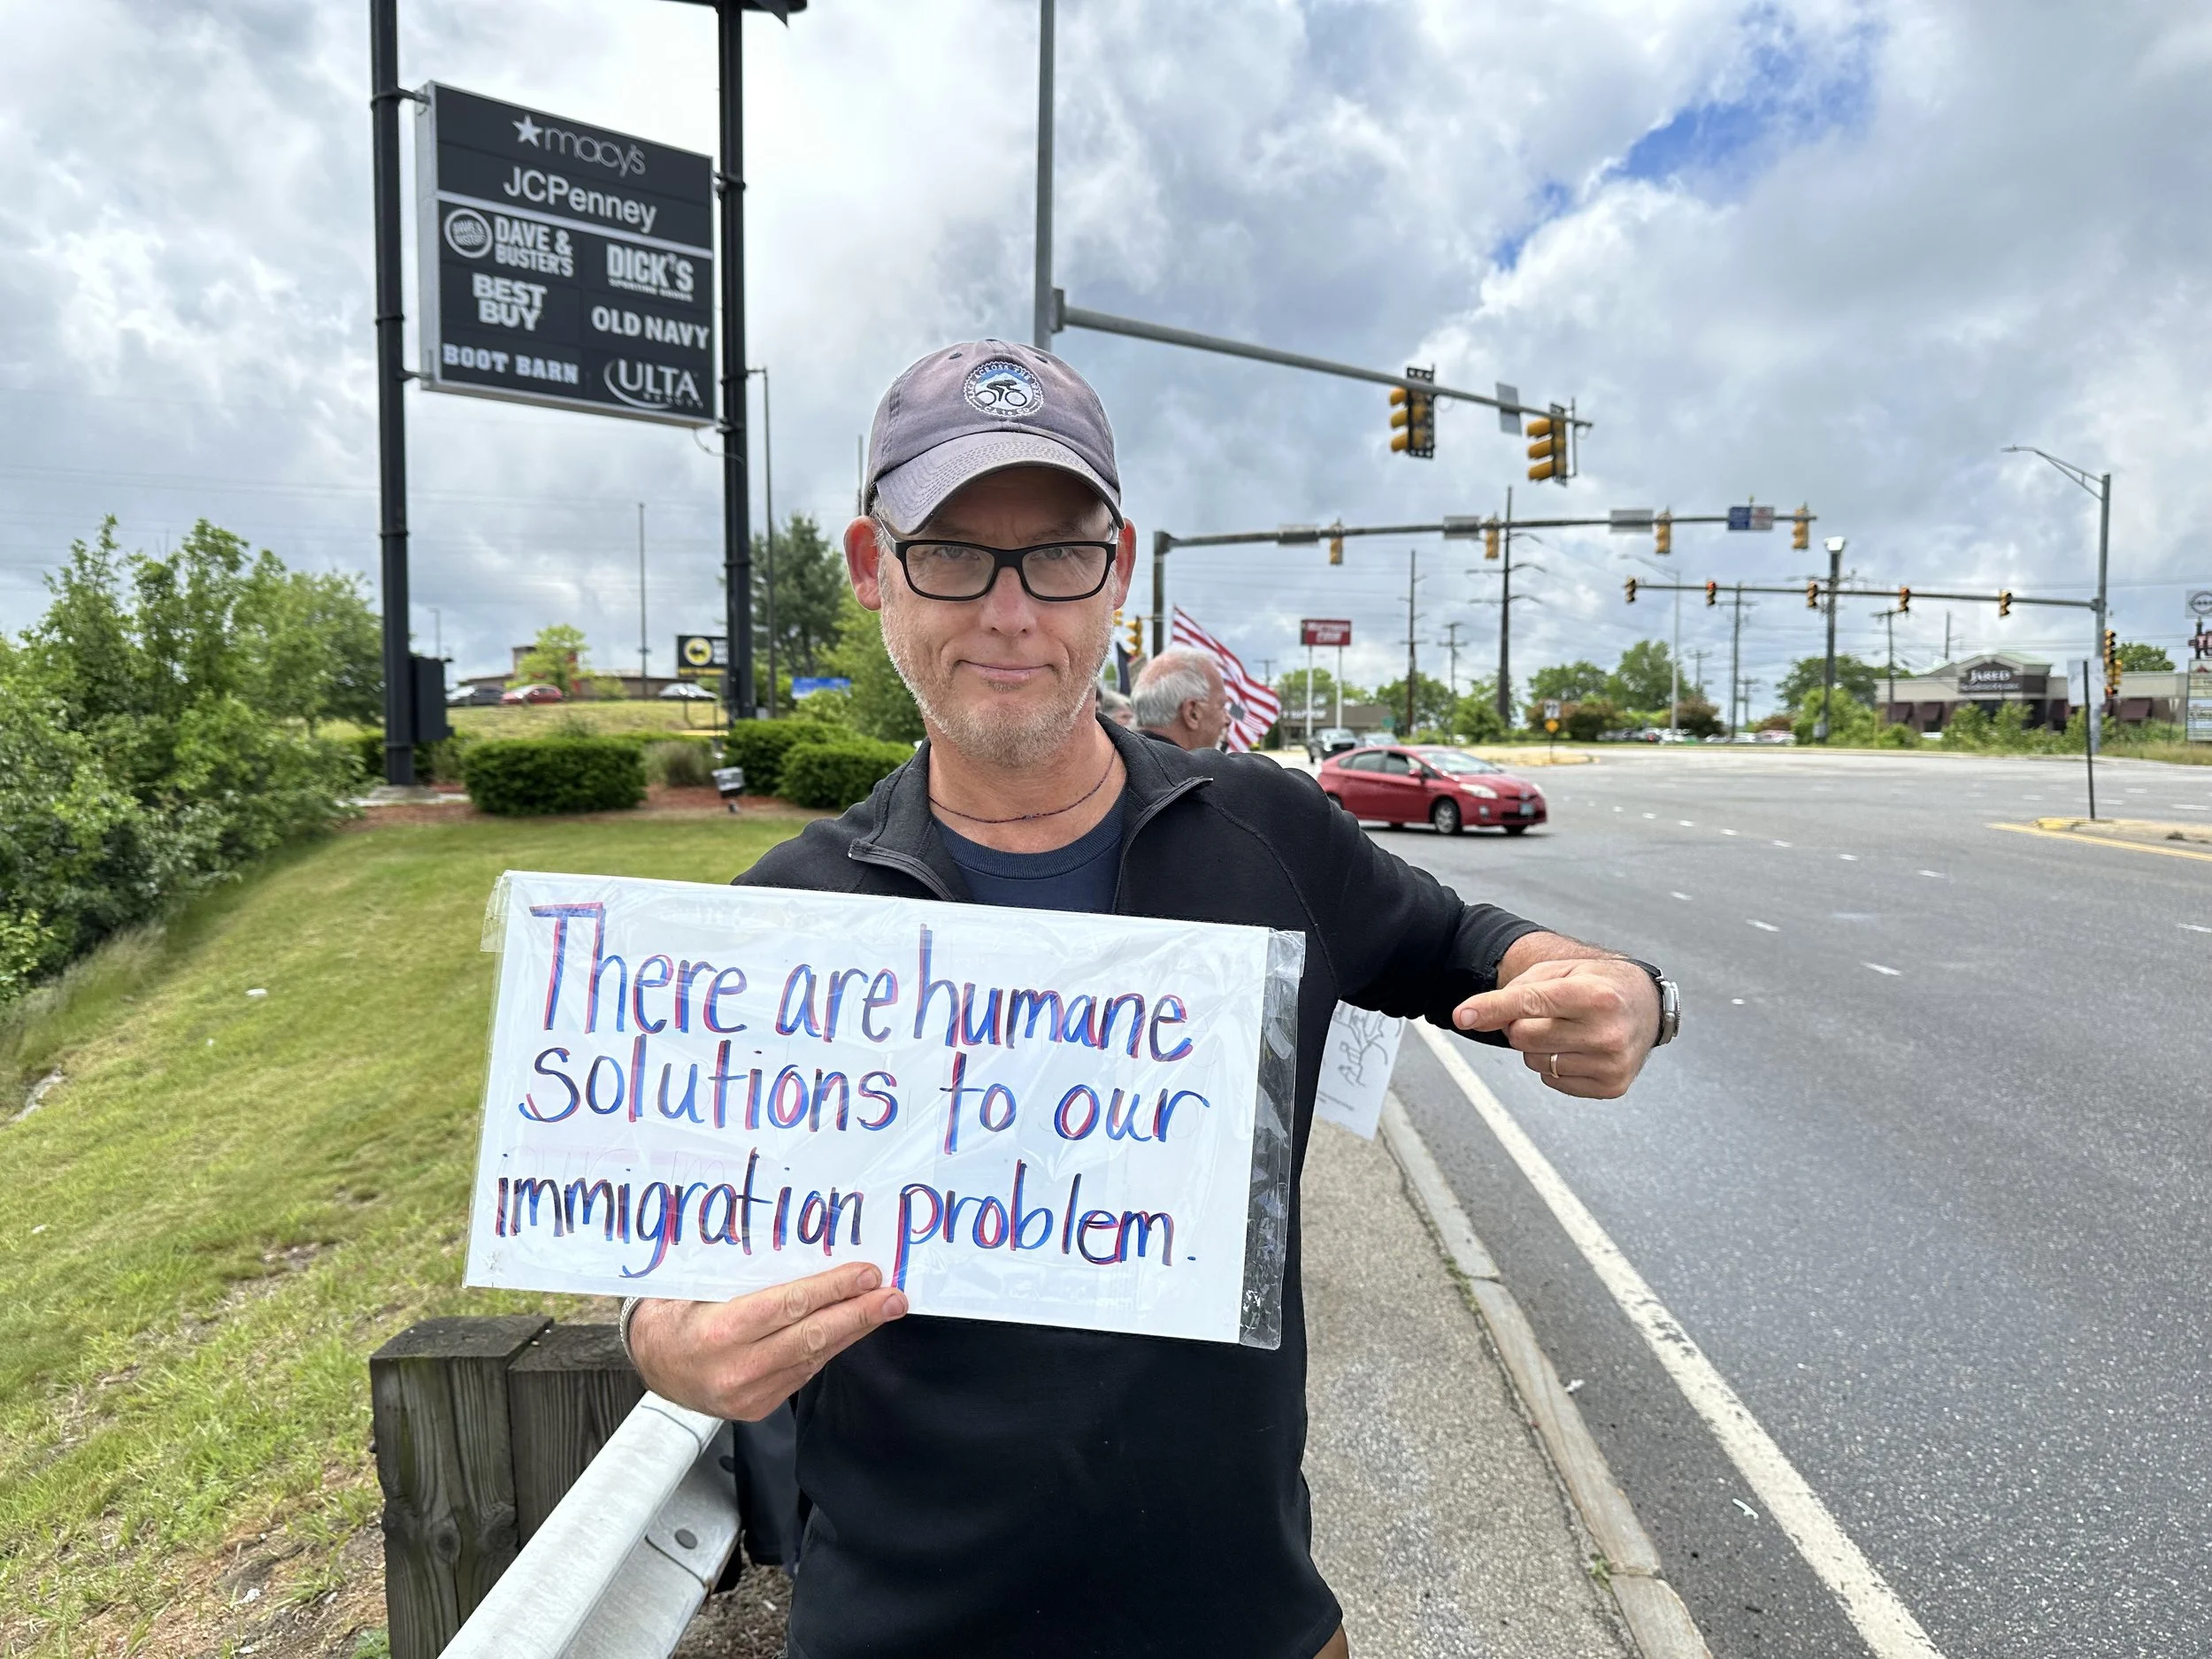 macy's
JCPenney
DAVE &
BUSTER'S
DICK'S
SPORTING GOODS
BEST
BUY
OLD NAVY
BOOT BARN
ULTA
BEAUTY
JARED
There are humane
solutions to our
immigration problem.